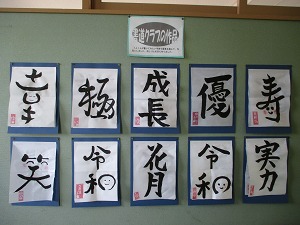 書道クラブの作品
喜
極
成長
優
寿
笑
令和
花月
令和
実力